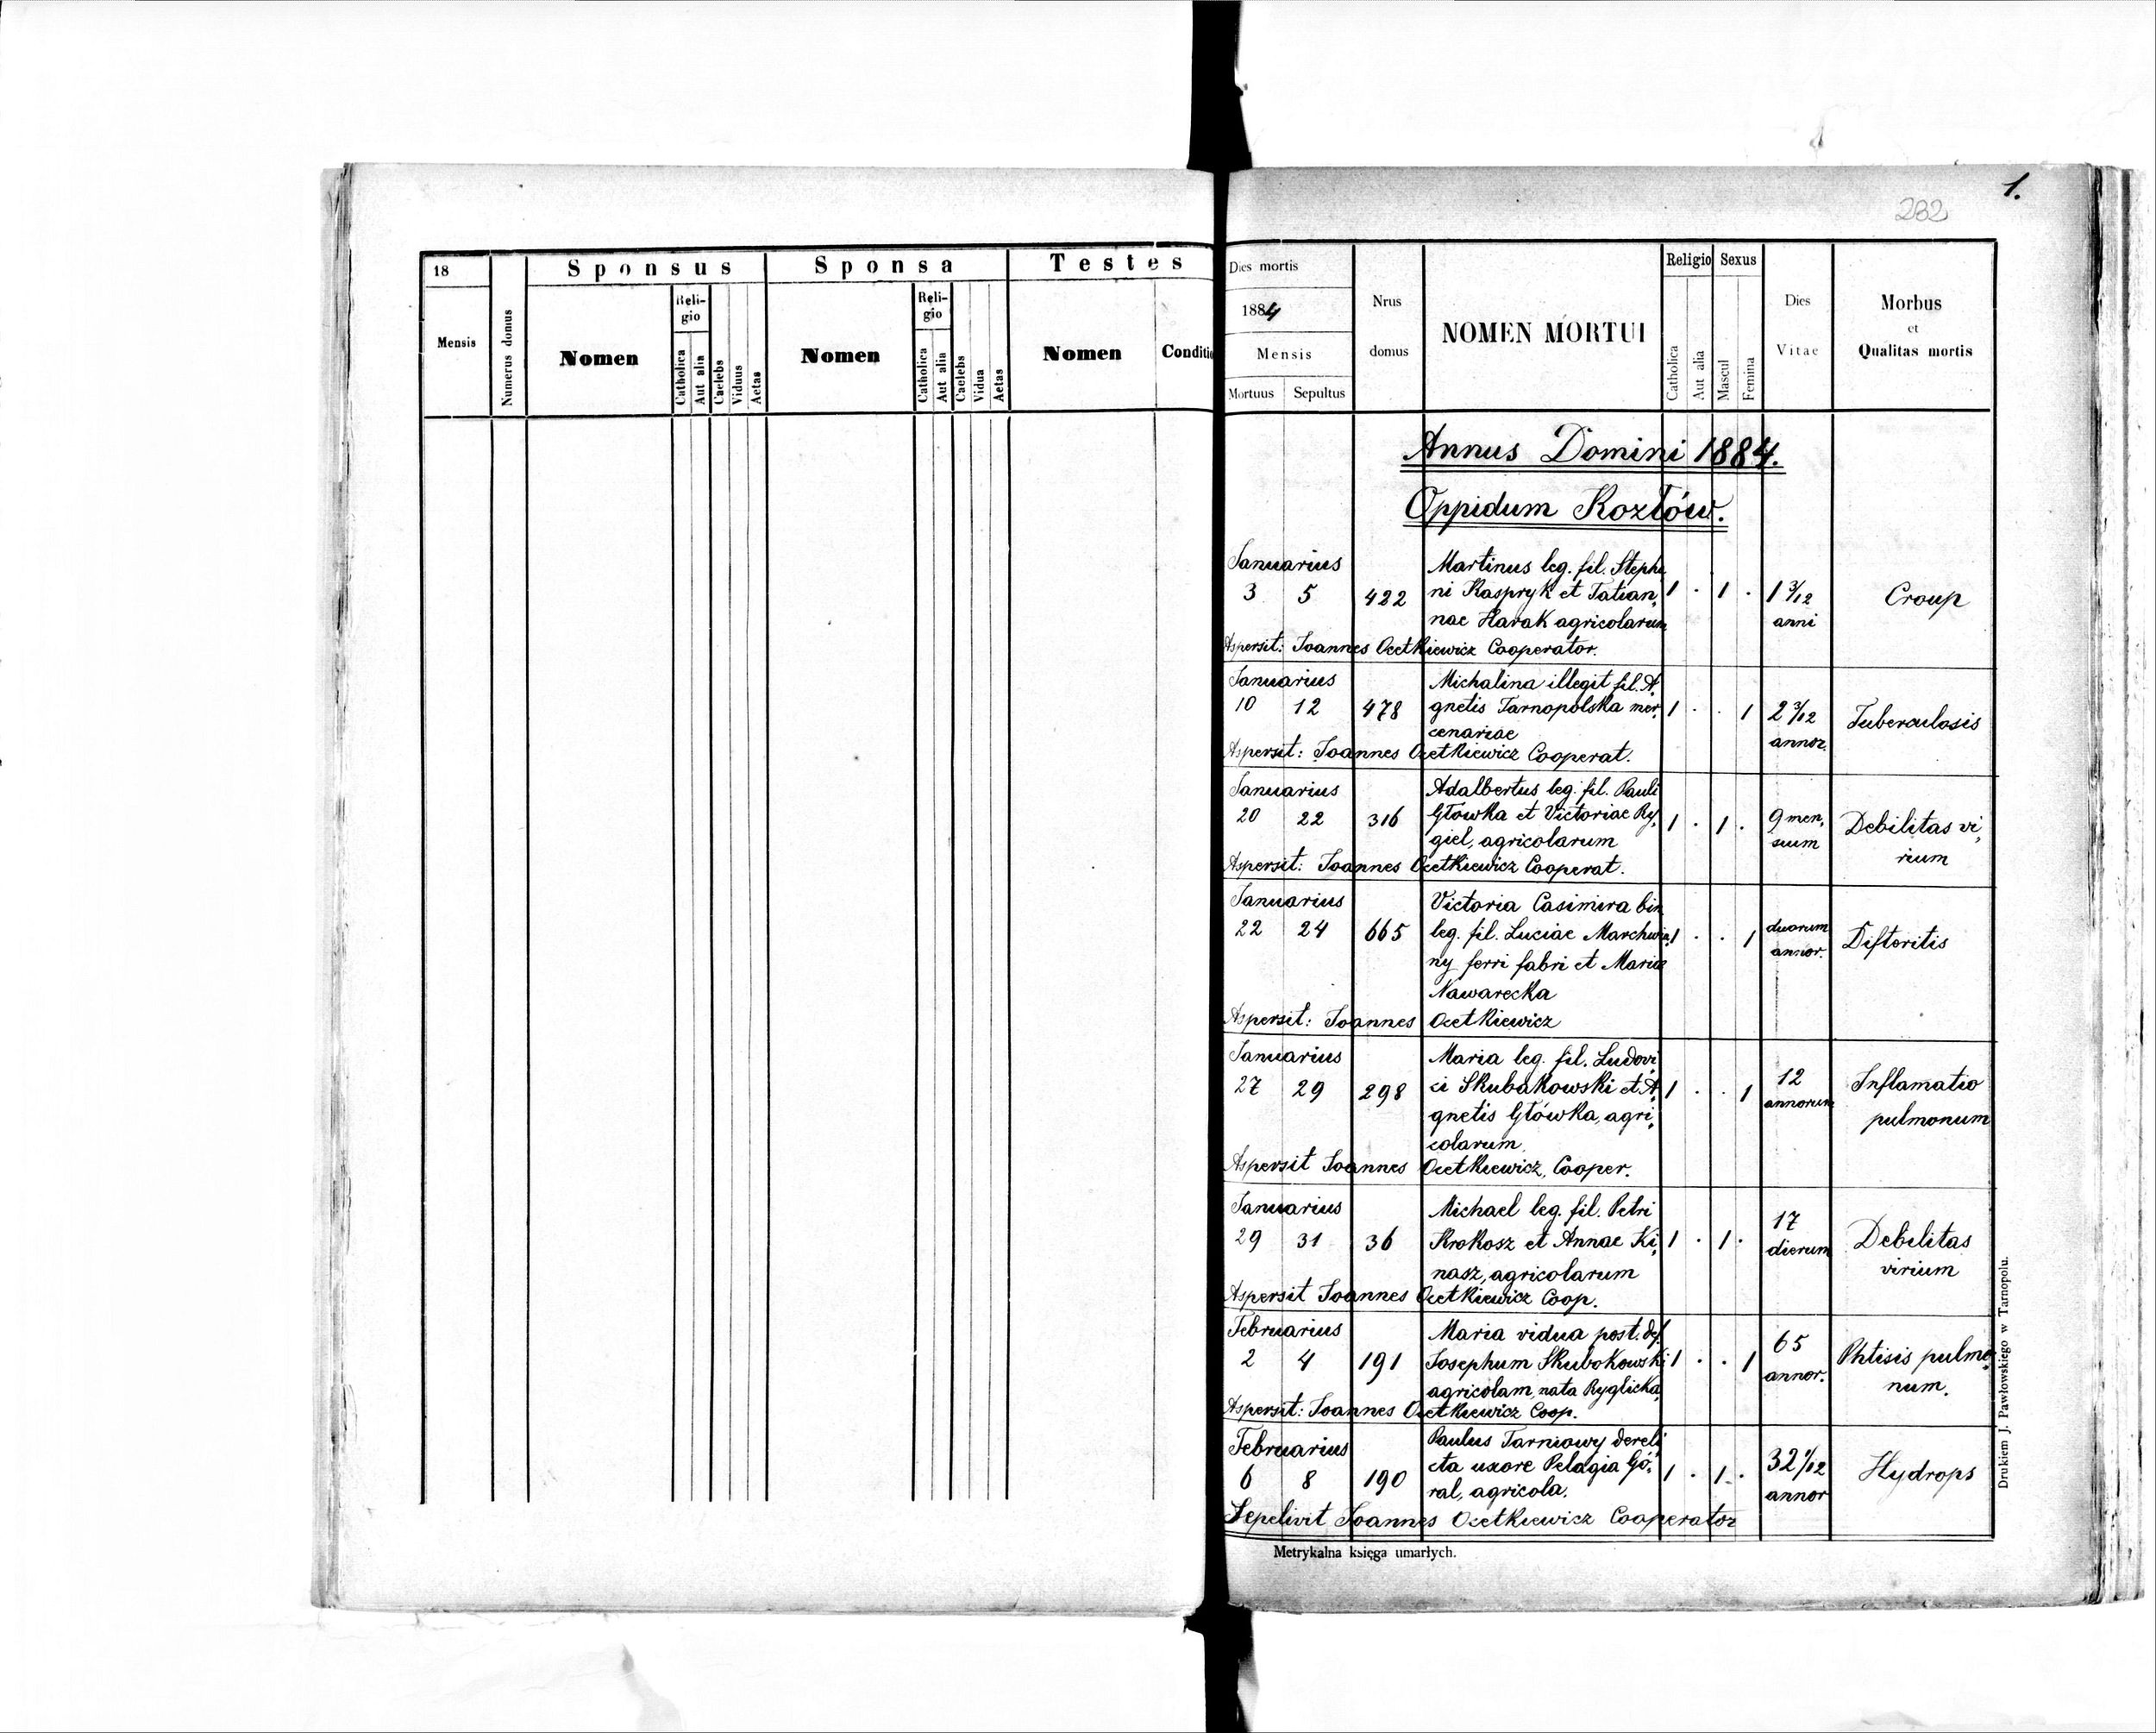 18
Mensis
Numerus domus
Sponsus
Nomen
Reli-
gio
Catholica
Aut alia
Caelebs
Viduus
Aetas
Sponsa
Nomen
Reli-
gio
Catholica
Aut alia
Caelebs
Vidua
Aetas
Testes
Nomen
Conditio
1.
232
Dies mortis
1884
Mensis
Mortuus Sepultus
Nrus
domus
NOMEN MORTUI
Religio
Catholica
Aut alia
Sexus
Mascul
Femina
Dies
Vitae
Morbus
et
Qualitas mortis
Annus Domini 1884.
Oppidum Kozłów.
Januarius Martinus leg. fil. Stepha
3 5 422 ni Kaspryk et Tatian, 1 . 1 . 1 3/12 Croup
nae Harak agricolarum anni
Aspersit: Joannes Ocetkiewicz Cooperator.
Januarius Michalina illegit fil. A,
10 12 478 gnetis Tarnopolska mer, 1 . . 1 2 3/12 Tuberculosis
cenariae annor.
Aspersit: Joannes Ocetkiewicz Cooperat.
Januarius Adalbertus leg. fil. Pauli
20 22 316 Główka et Victoriae Ry, 1 . 1 . 9 men, Debilitas vi,
giel, agricolarum sium rium
Aspersit: Joannes Ocetkiewicz Cooperat.
Januarius Victoria Casimira bin
22 24 665 leg. fil. Luciae Marchwia, 1 . . 1 duorum Difteritis
ny ferri fabri et Mariae annor.
Nawarecka
Aspersit: Joannes Ocetkiewicz
Januarius Maria leg. fil. Ludovi,
27 29 298 ci Skubakowski et A, 1 . . 1 12 Inflamatio
gnetis Główka, agri, annorum pulmonum
colarum
Aspersit Joannes Ocetkiewicz, Cooper.
Januarius Michael leg. fil. Petri
29 31 36 Krokosz et Annae Ki, 1 . 1 . 17 dierum Debilitas
nasz, agricolarum virium
Aspersit Joannes Ocetkiewicz Coop.
Februarius Maria vidua post. def.
2 4 191 Josephum Skubokowski 1 . . 1 65 Phtisis pulmo,
agricolam, nata Ryglicka, annor. num.
Aspersit: Joannes Ocetkiewicz Coop.
Februarius Paulus Tarniowy dereli,
6 8 190 cta uxore Pelagia Gó, 1 . 1 . 32 1/12 Hydrops
ral, agricola. annor
Sepelivit Joannes Ocetkiewicz Cooperator
Metrykalna księga umarłych.
Drukiem J. Pawłowskiego w Tarnopolu.